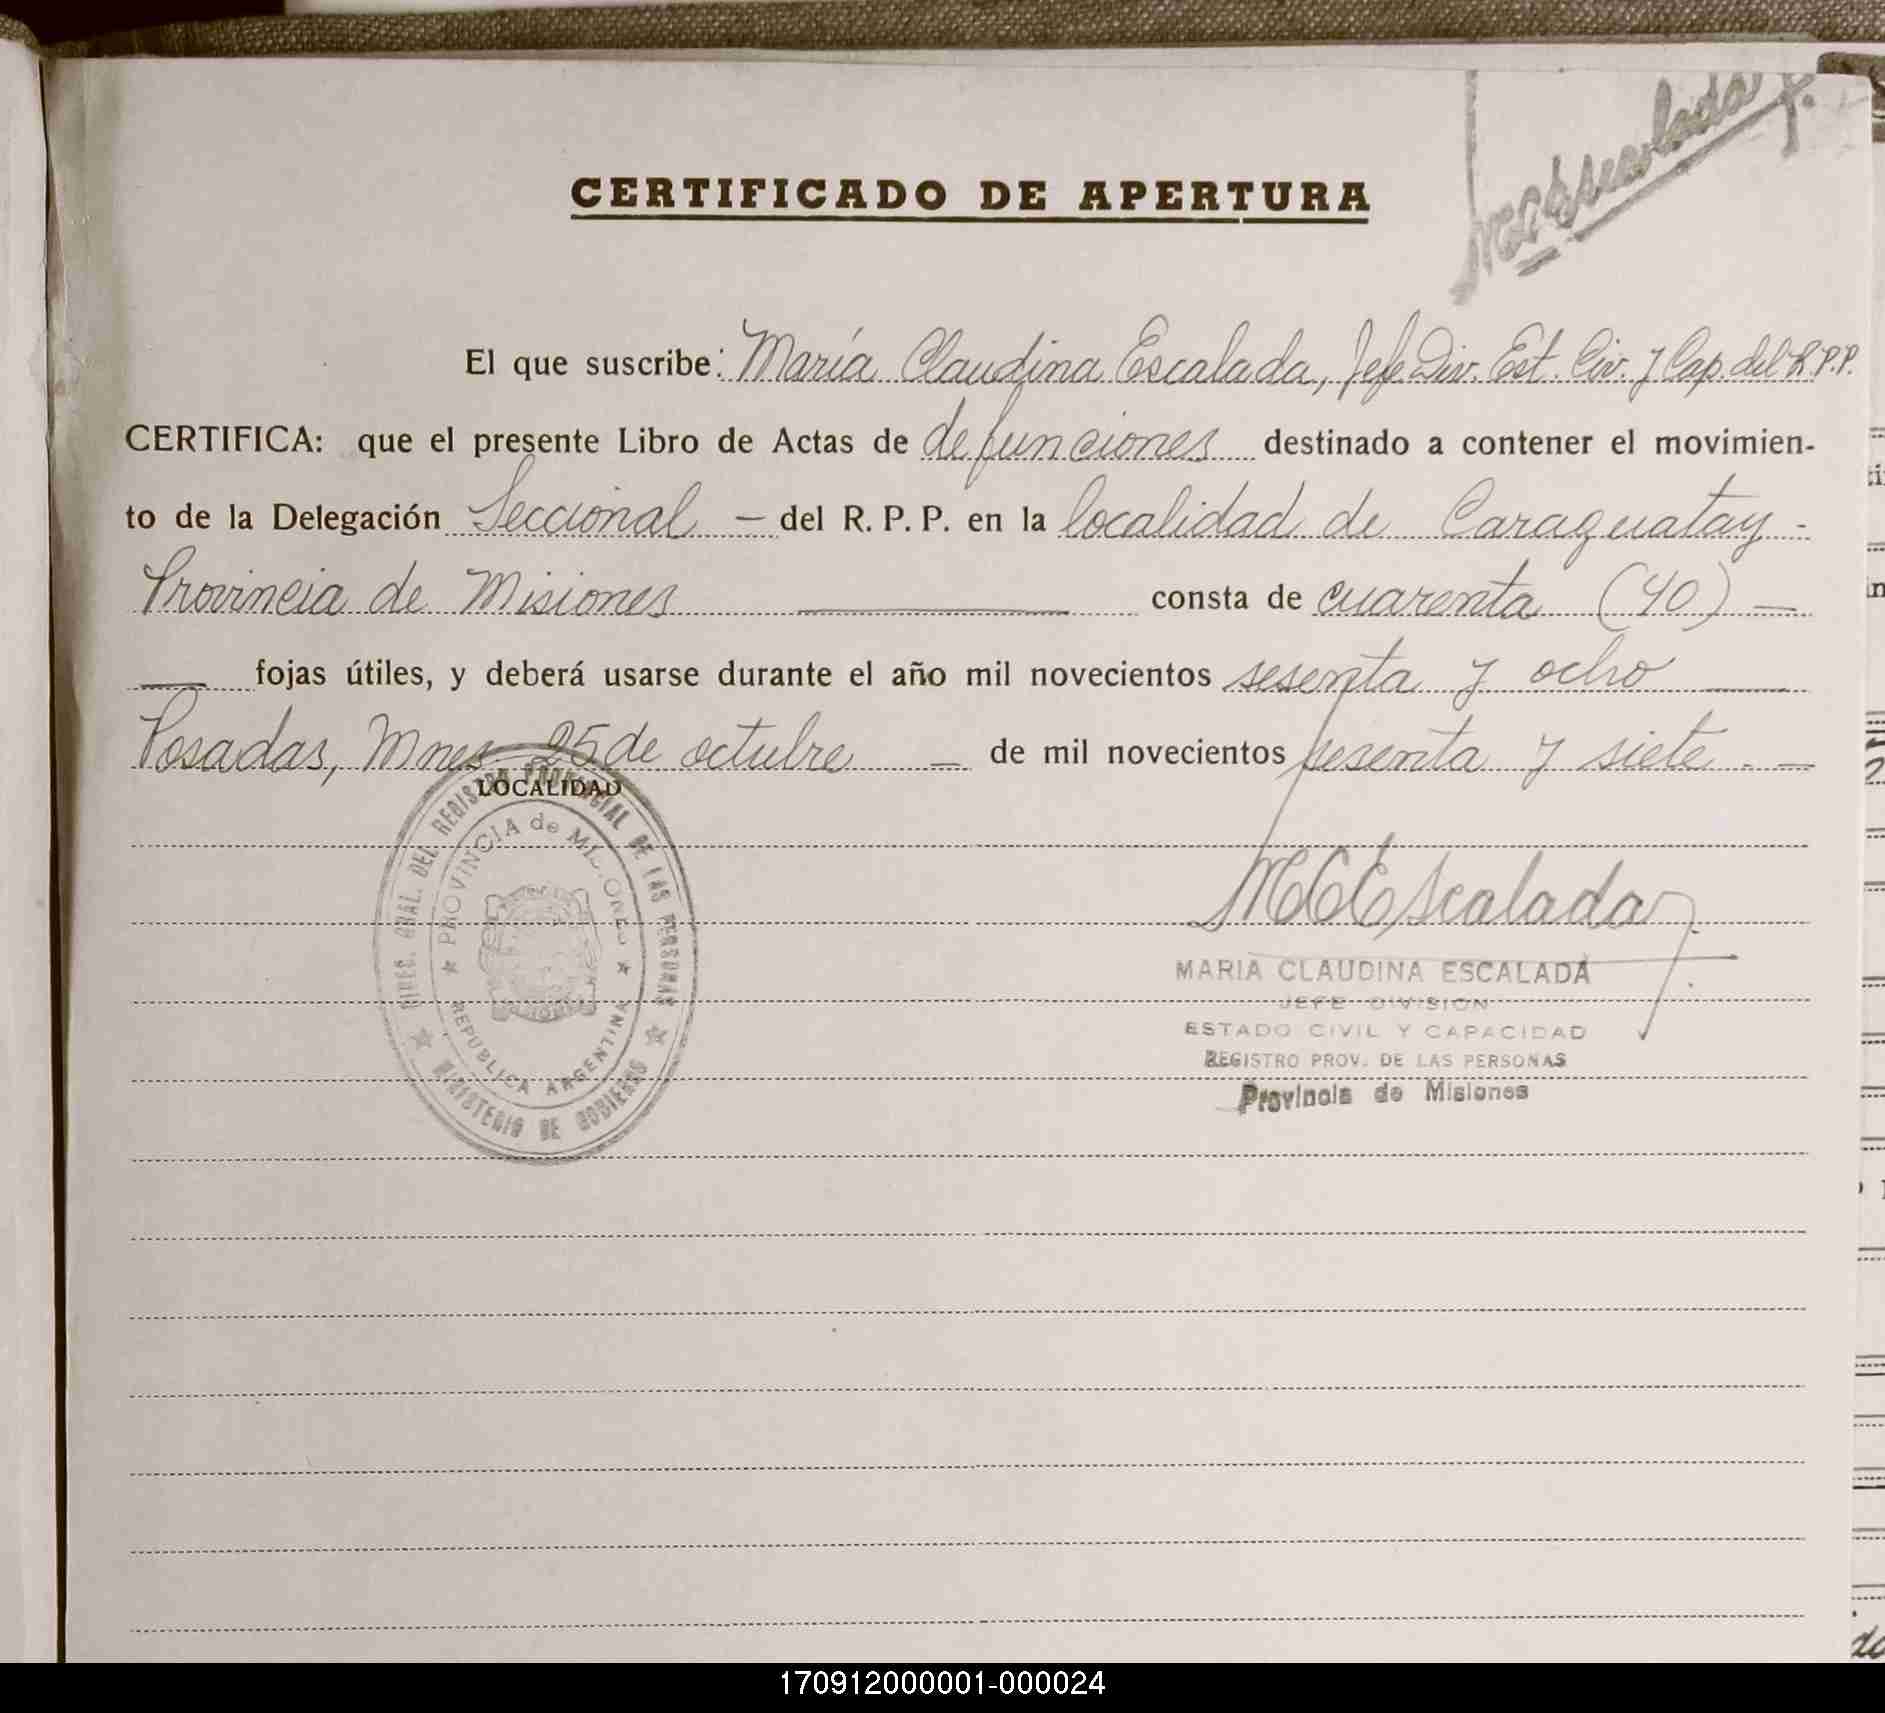 MCEscalada
CERTIFICADO DE APERTURA
El que suscribe: María Claudina Escalada, Jefe Div. Est. Civ. y Cap. del R.P.P.
CERTIFICA: que el presente Libro de Actas de defunciones destinado a contener el movimien-
to de la Delegación Seccional – del R. P. P. en la localidad de Caraguatay -
Provincia de Misiones — consta de cuarenta (40) —
— fojas útiles, y deberá usarse durante el año mil novecientos sesenta y ocho —
Posadas, Mnes. 25 de octubre – de mil novecientos sesenta y siete. —
LOCALIDAD
DIREC. GRAL. DEL REGISTRO PROVINCIAL DE LAS PERSONAS
PROVINCIA de MISIONES
REPUBLICA ARGENTINA
MINISTERIO DE GOBIERNO
MCEscalada
MARIA CLAUDINA ESCALADA
JEFE DIVISION
ESTADO CIVIL Y CAPACIDAD
REGISTRO PROV. DE LAS PERSONAS
Provincia de Misiones
170912000001-000024